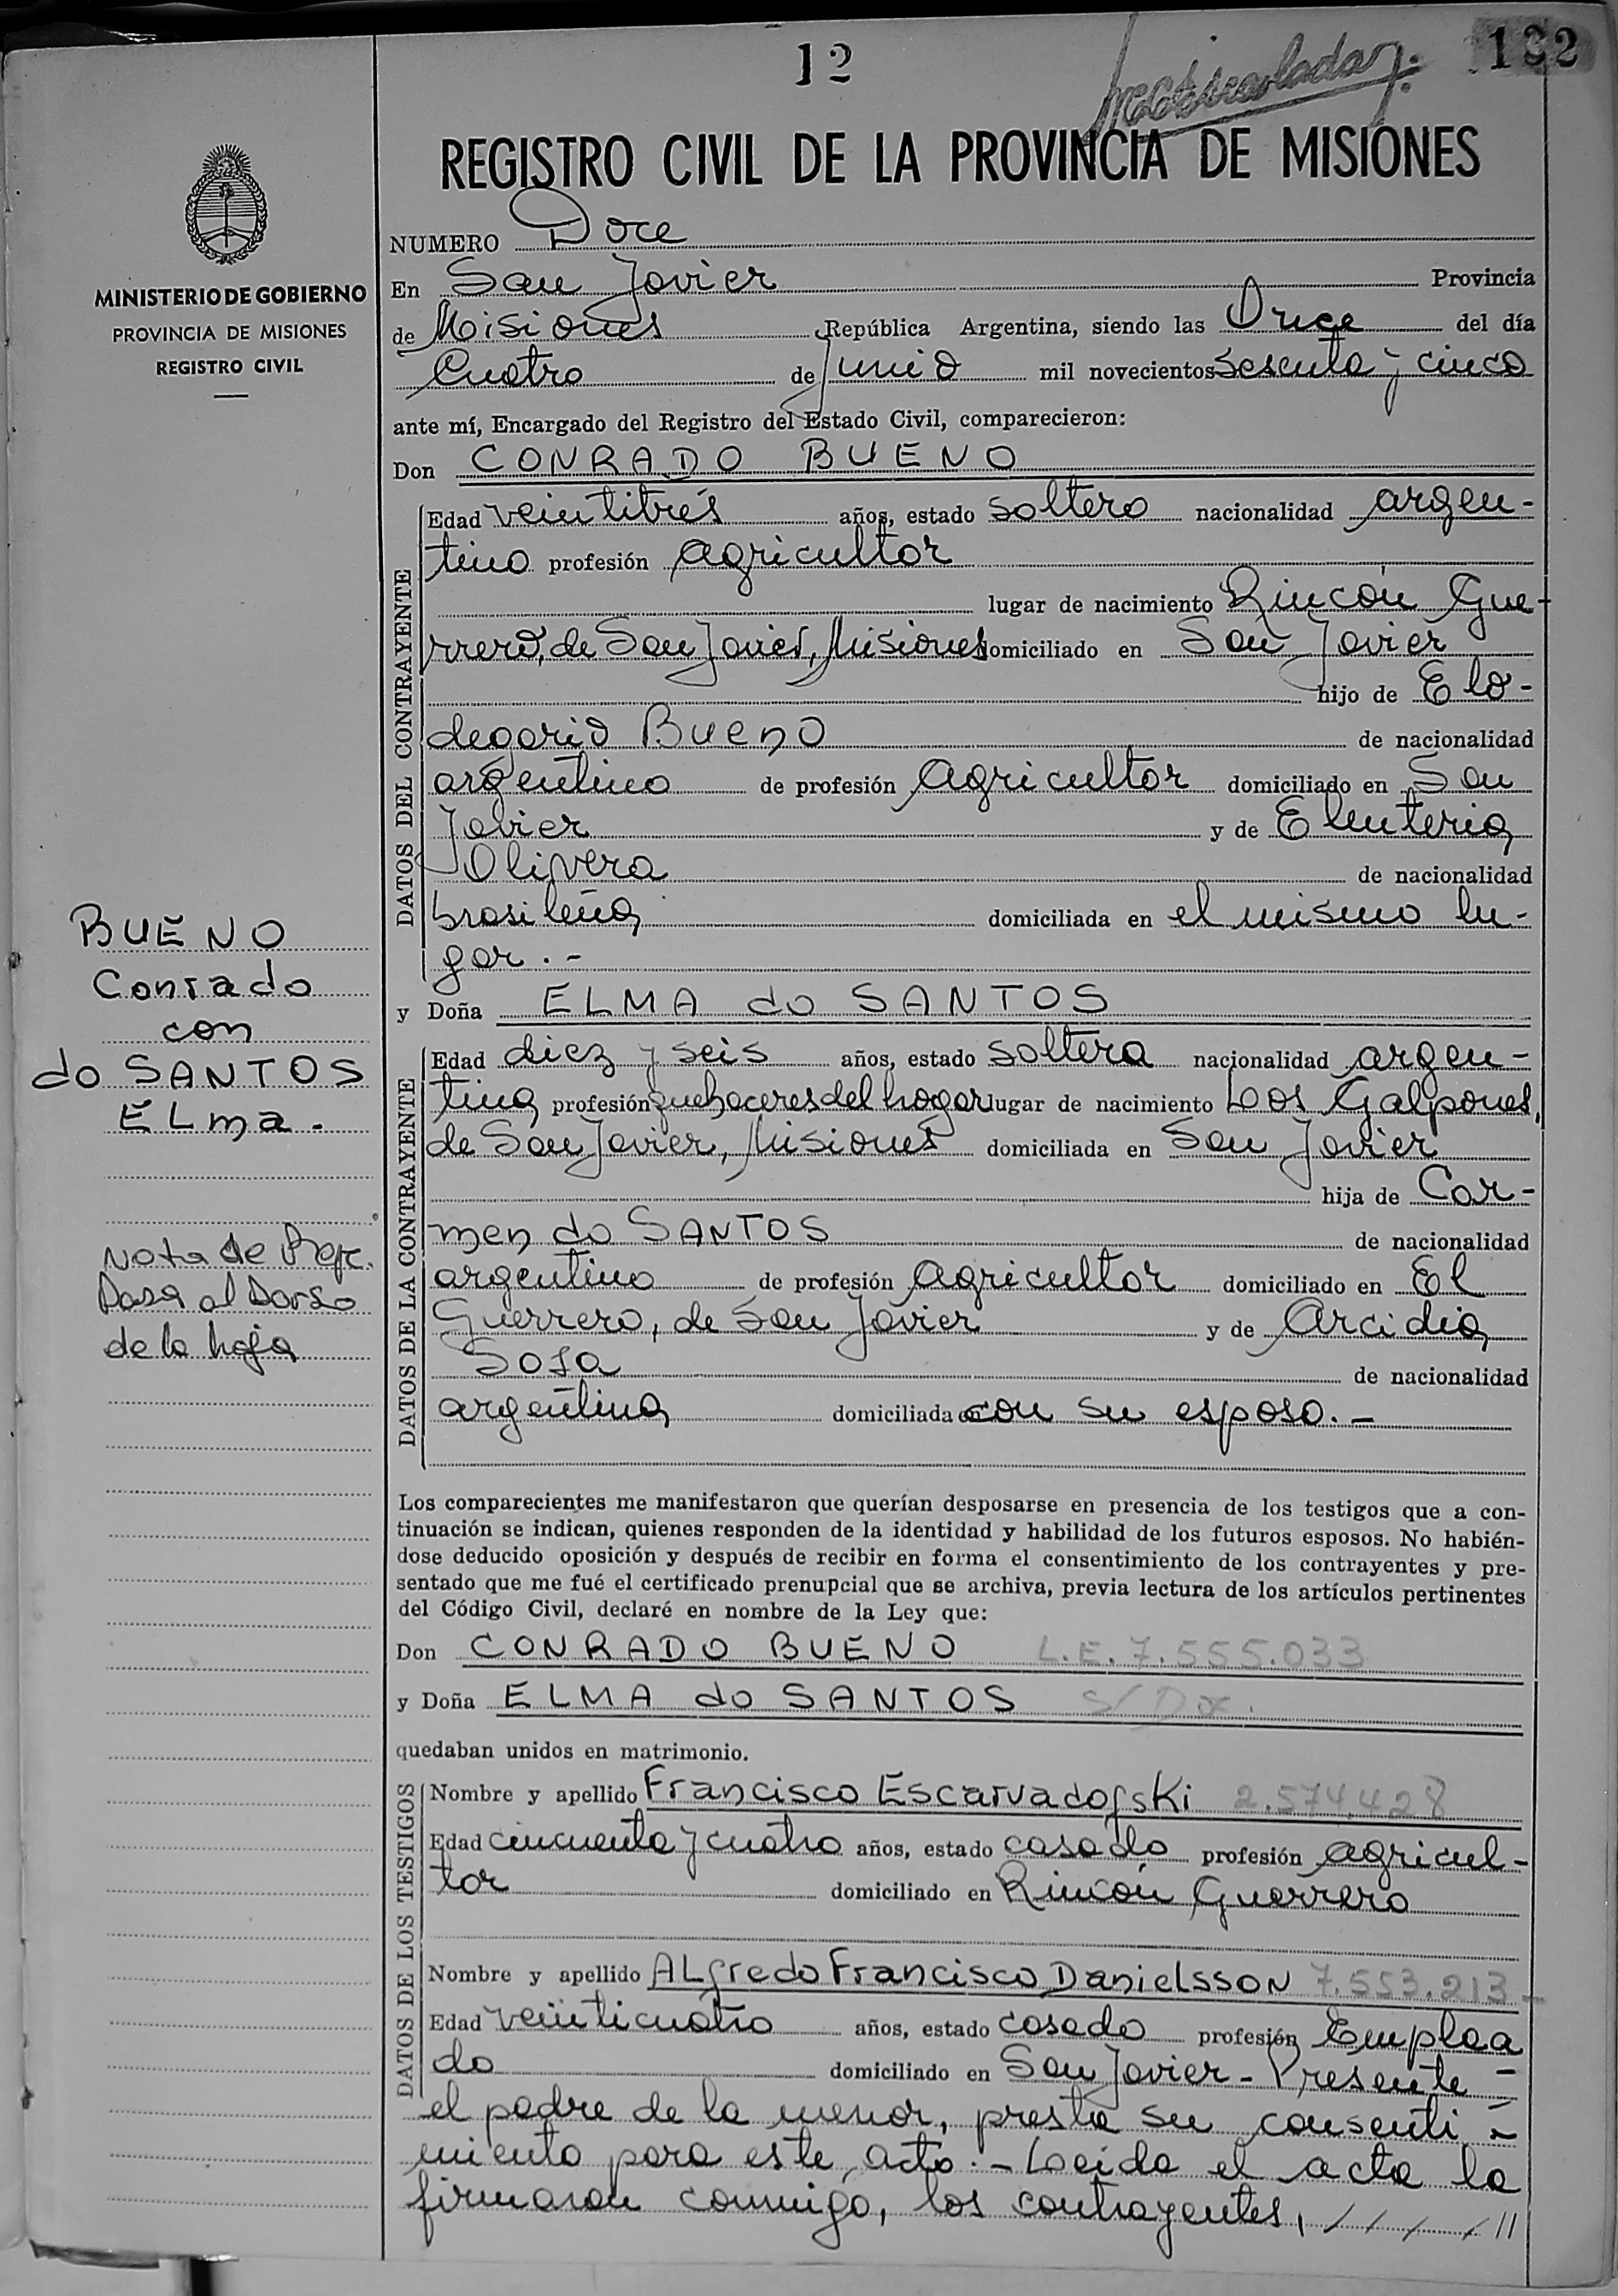 12
132
REGISTRO CIVIL DE LA PROVINCIA DE MISIONES
MINISTERIO DE GOBIERNO
PROVINCIA DE MISIONES
REGISTRO CIVIL
NUMERO Doce
En San Javier Provincia
de Misiones República Argentina, siendo las Once del día
Cuatro de Junio mil novecientos Sesenta y cinco
ante mí, Encargado del Registro del Estado Civil, comparecieron:
Don CONRADO BUENO
DATOS DEL CONTRAYENTE
Edad veintitrés años, estado soltero nacionalidad argen-
tino profesión agricultor
lugar de nacimiento Rincón Gue-
rrero, de San Javier, Misiones domiciliado en San Javier
hijo de Elo-
degario Bueno de nacionalidad
argentino de profesión agricultor domiciliado en San
Javier y de Eleuteria
Olivera de nacionalidad
brasileña domiciliada en el mismo lu-
gar.-
y Doña ELMA do SANTOS
DATOS DE LA CONTRAYENTE
Edad diez y seis años, estado soltera nacionalidad argen-
tina profesión quehaceres del hogar lugar de nacimiento Los Galpones,
de San Javier, Misiones domiciliada en San Javier
hija de Car-
men do SANTOS de nacionalidad
argentino de profesión agricultor domiciliado en El
Guerrero, de San Javier y de Arcidia
Sosa de nacionalidad
argentina domiciliada con su esposo.-
BUENO
Conrado
con
do SANTOS
ELma.
Nota de Refe.
Pasa al Dorso
de la hoja
Los comparecientes me manifestaron que querían desposarse en presencia de los testigos que a con-
tinuación se indican, quienes responden de la identidad y habilidad de los futuros esposos. No habién-
dose deducido oposición y después de recibir en forma el consentimiento de los contrayentes y pre-
sentado que me fué el certificado prenupcial que se archiva, previa lectura de los artículos pertinentes
del Código Civil, declaré en nombre de la Ley que:
Don CONRADO BUENO L.E. 7.555.033
y Doña ELMA do SANTOS S/Do.
quedaban unidos en matrimonio.
DATOS DE LOS TESTIGOS
Nombre y apellido Francisco Escarvadofski 2.574.428
Edad cincuenta y cuatro años, estado casado profesión agricul-
tor domiciliado en Rincón Guerrero
Nombre y apellido ALfredo Francisco Danielsson 7.553.213-
Edad veinticuatro años, estado casado profesión Emplea
do domiciliado en San Javier - Presente -
el padre de la menor, presta su consenti-
miento para este acto.- Leida el acta la
firmaron conmigo, los contrayentes, //////